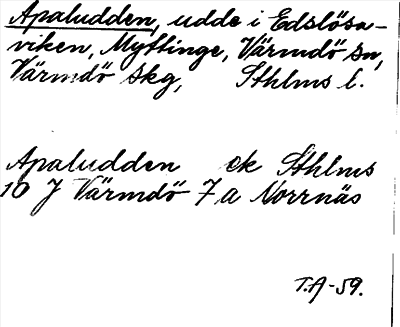 Apaludden, udde i Edslösa-
viken, Myttinge, Värmdö sn,
Värmdö skg, Sthlms l.
Apaludden ek Sthlms
10 J Värmdö 7 a Norrnäs
T.A-59.